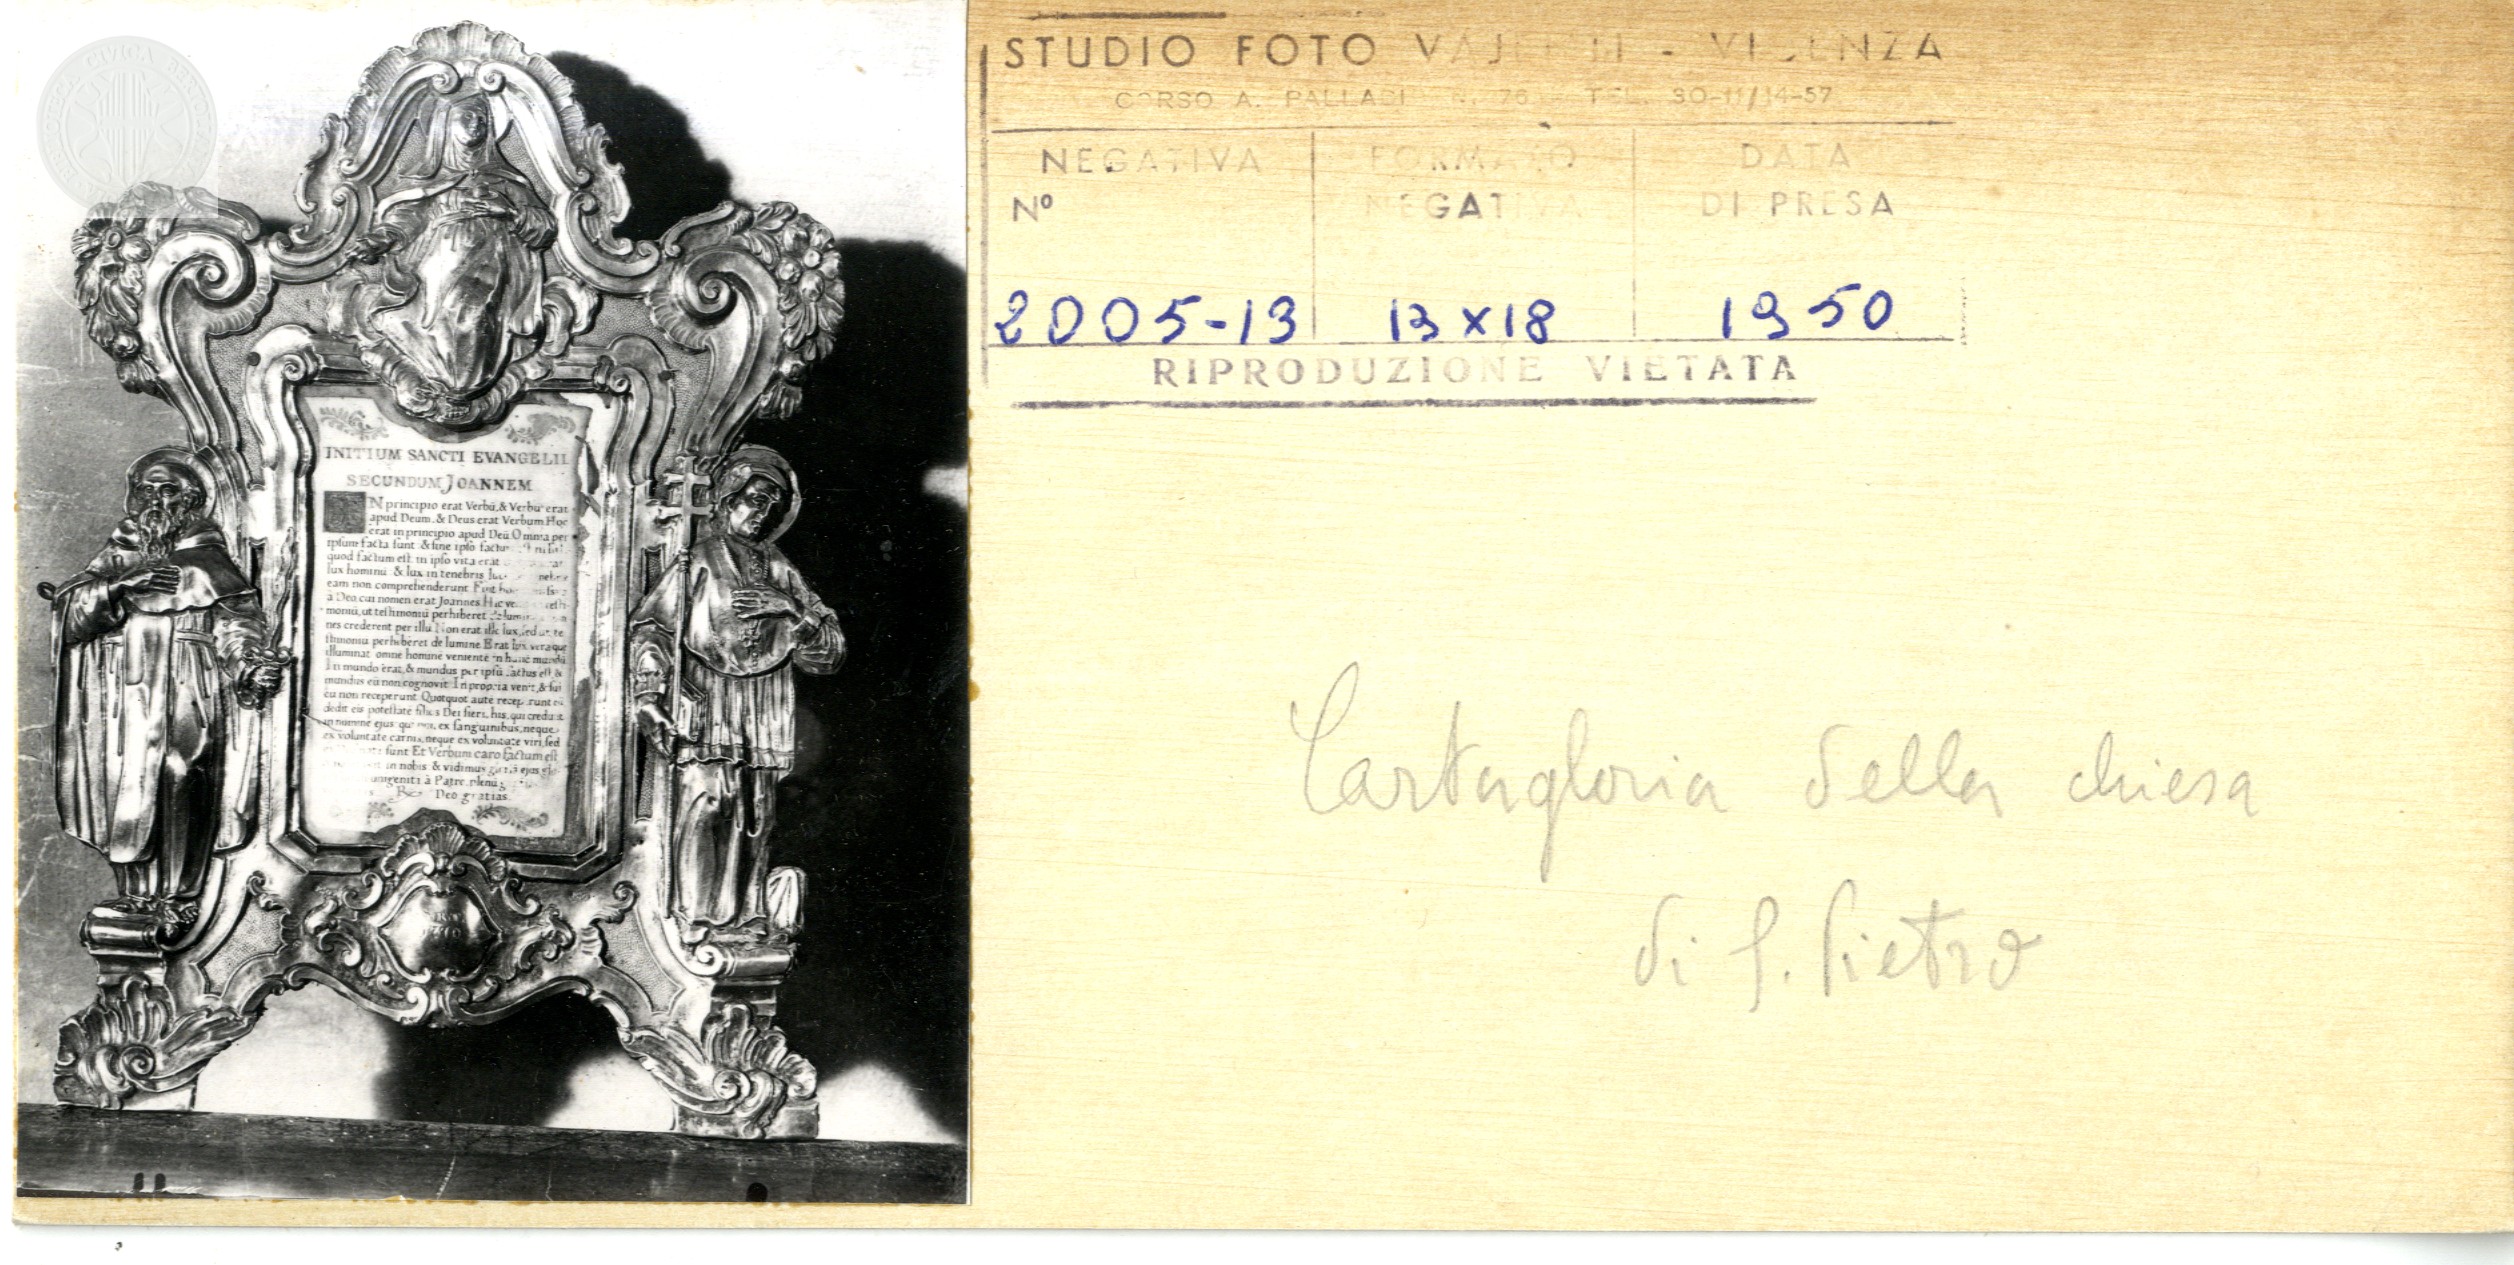 INITIUM SANCTI EVANGELII
SECUNDUM JOANNEM
IN principio erat Verbū, & Verbū erat
apud Deum, & Deus erat Verbum Hoc
erat in principio apud Deū. Omnia per
ipsum facta sunt & sine ipso factū
quod factum est in ipso vita erat
lux hominū & lux in tenebris
eam non comprehenderunt Fuit
à Deo, cui nomen erat Joannes Hic
moniū, ut testimoniū perhiberet
nes crederent per illū Non erat ille lux, sed ut te
stimoniū perhiberet de lumine Erat lux vera que
illuminat omnē hominē venientē in hunc mundū
In mundo erat, & mundus per ipsū factus est, &
mundus eū non cognovit In propria venit, & sui
eū non receperunt Quotquot autē receperunt eū
dedit eis potestatē filios Dei fieri, his, qui credunt
in nomine ejus qui non, ex sanguinibus, neque
ex voluntate carnis, neque ex voluntate viri, sed
sunt Et Verbum caro factum est
in nobis & vidimus ejus
unigeniti à Patre, plenū
Deo gratias
STUDIO FOTO VAJENTI - VICENZA
CORSO A. PALLADI N. 76 - TEL. 30-11/14-57
NEGATIVA FORMATO DATA
Nº NEGATIVA DI PRESA
2005-13 13x18 1950
RIPRODUZIONE VIETATA
Cartagloria della chiesa
di S. Pietro